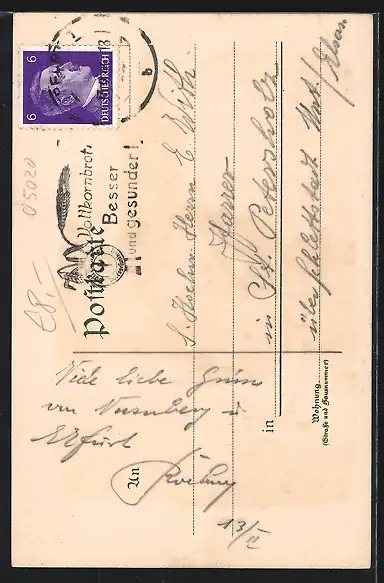 6 6
DEUTSCHES REICH
Vollkornbrot
Besser
und gesünder!
b
Postkarte
05020
€8,–
S. Hochw. Herrn E. Wirth
Pfarrer
in St. Petersholz
über Schlettstadt Unt. Elsass
Viele liebe Grüße
von Nürnberg u.
Erfurt
An
13/II
in
Wohnung
(Straße und Hausnummer)